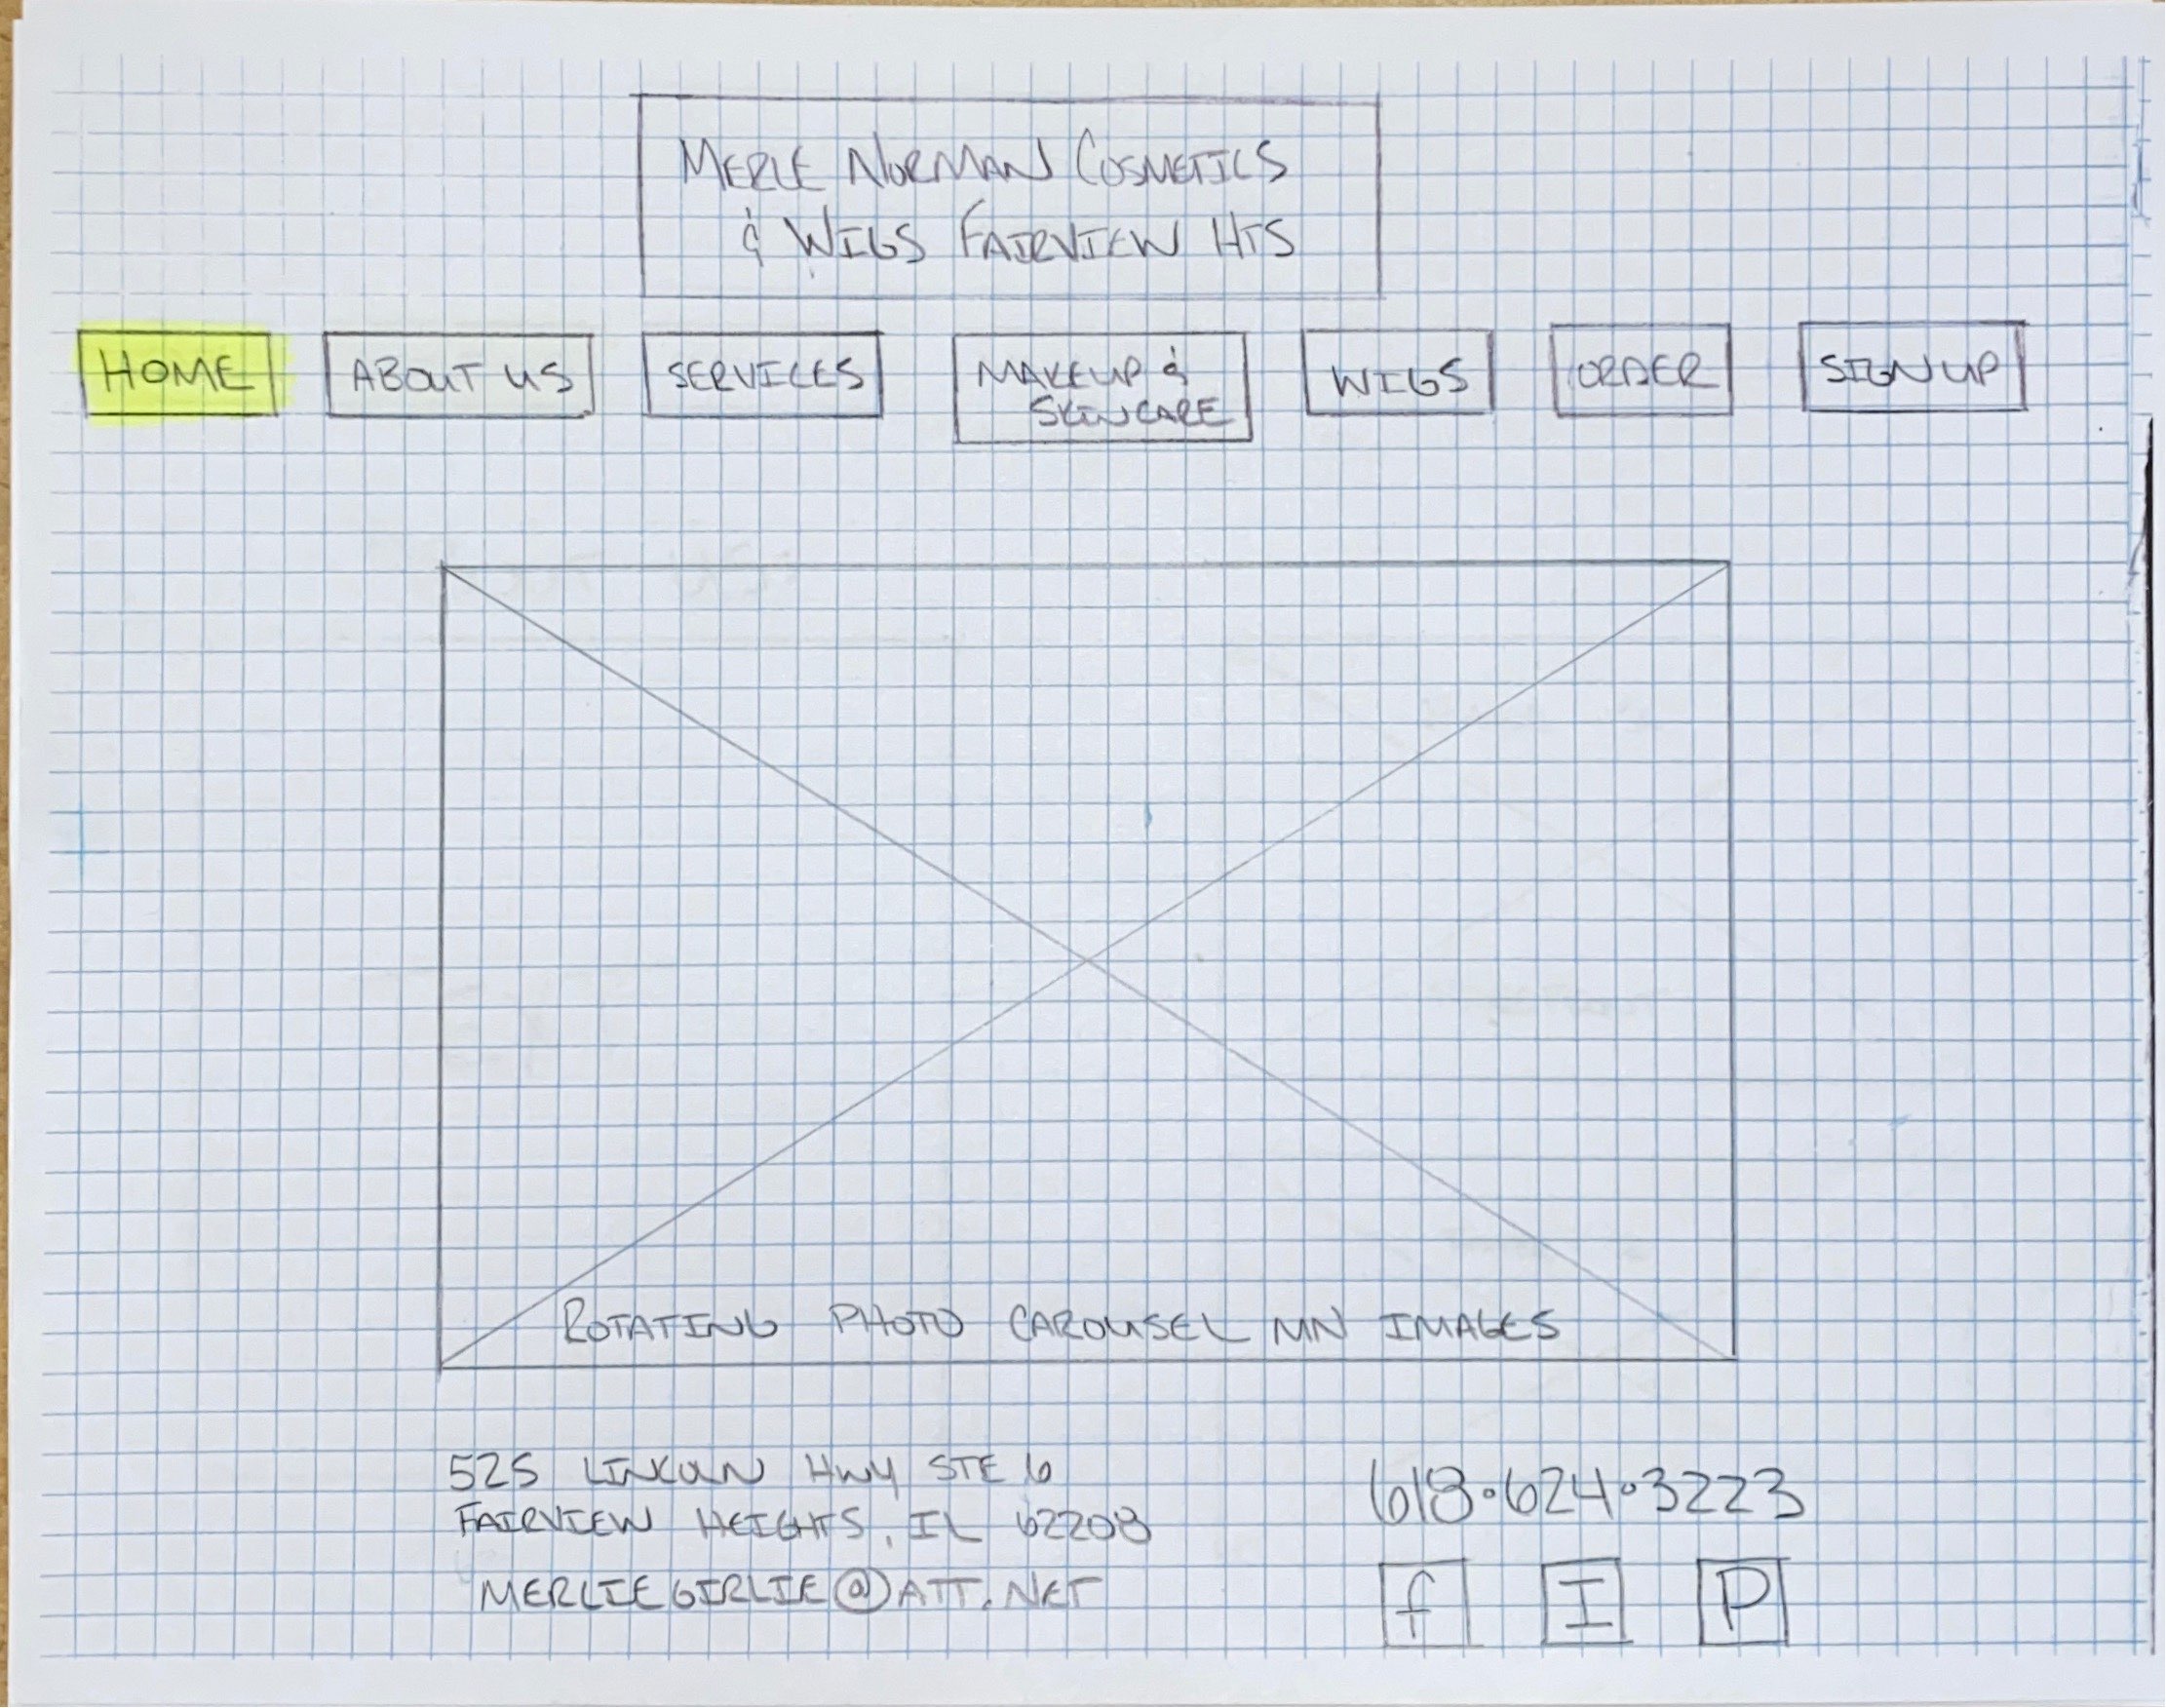 MERLE NORMAN COSMETICS
& WIGS FAIRVIEW HTS
HOME ABOUT US SERVICES MAKEUP & WIGS ORDER SIGN UP
SKINCARE
ROTATING PHOTO CAROUSEL MN IMAGES
525 LINCOLN HWY STE 6
FAIRVIEW HEIGHTS, IL 62208
MERLIEGIRLIE@ATT.NET
618·624·3223
f I P